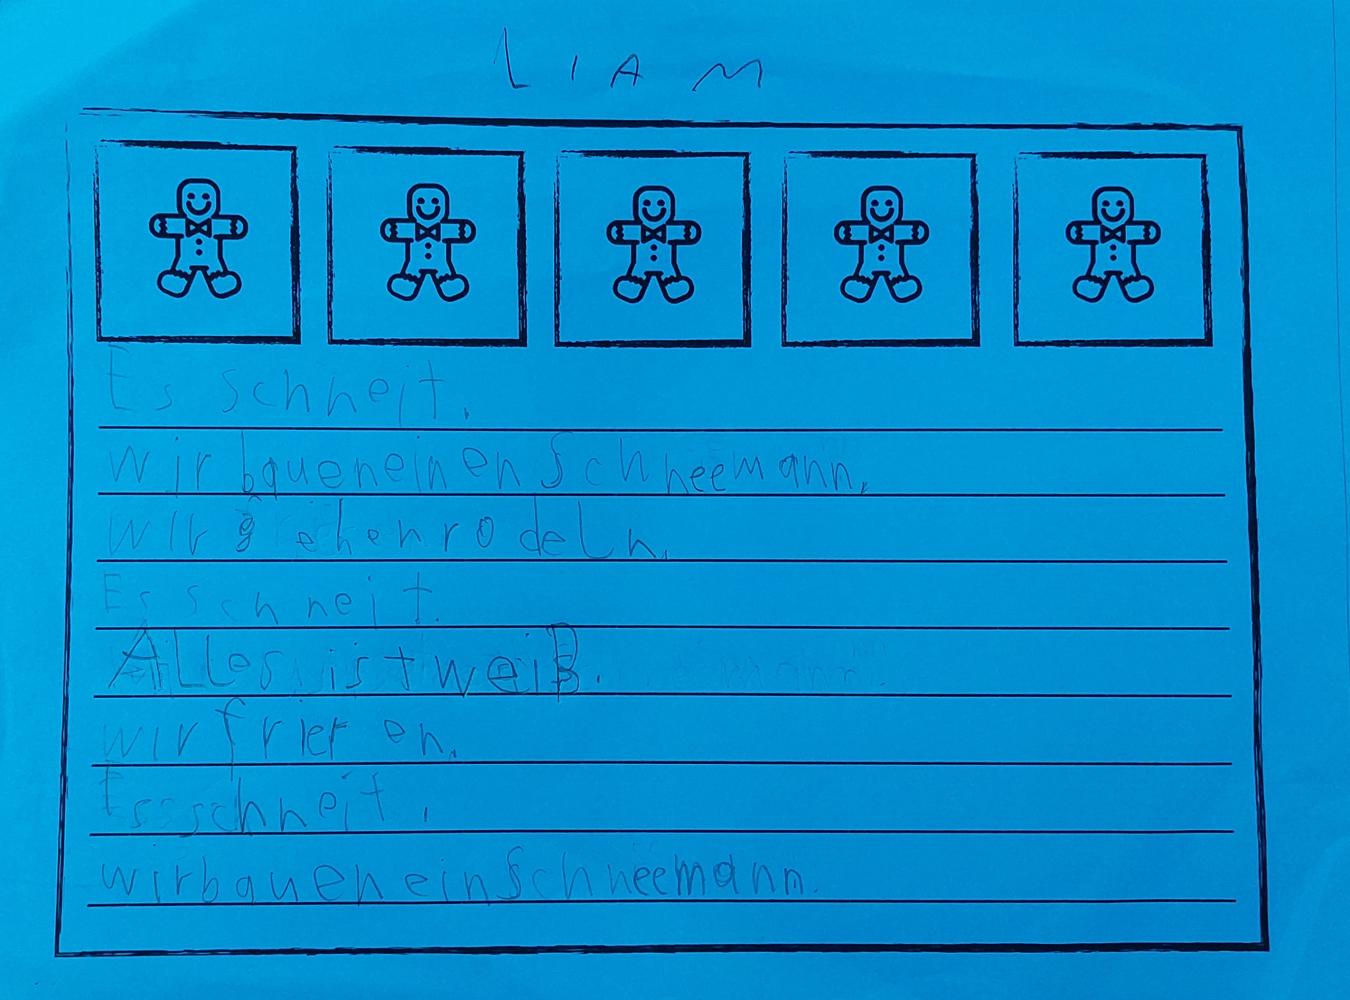 LIAM
Es schneit.
wir baueneinen Schneemann.
wir gehenrodeln.
Es schneit.
Alles istweiß.
wir frieren.
Esschneit.
wirbauen einSchneemann.